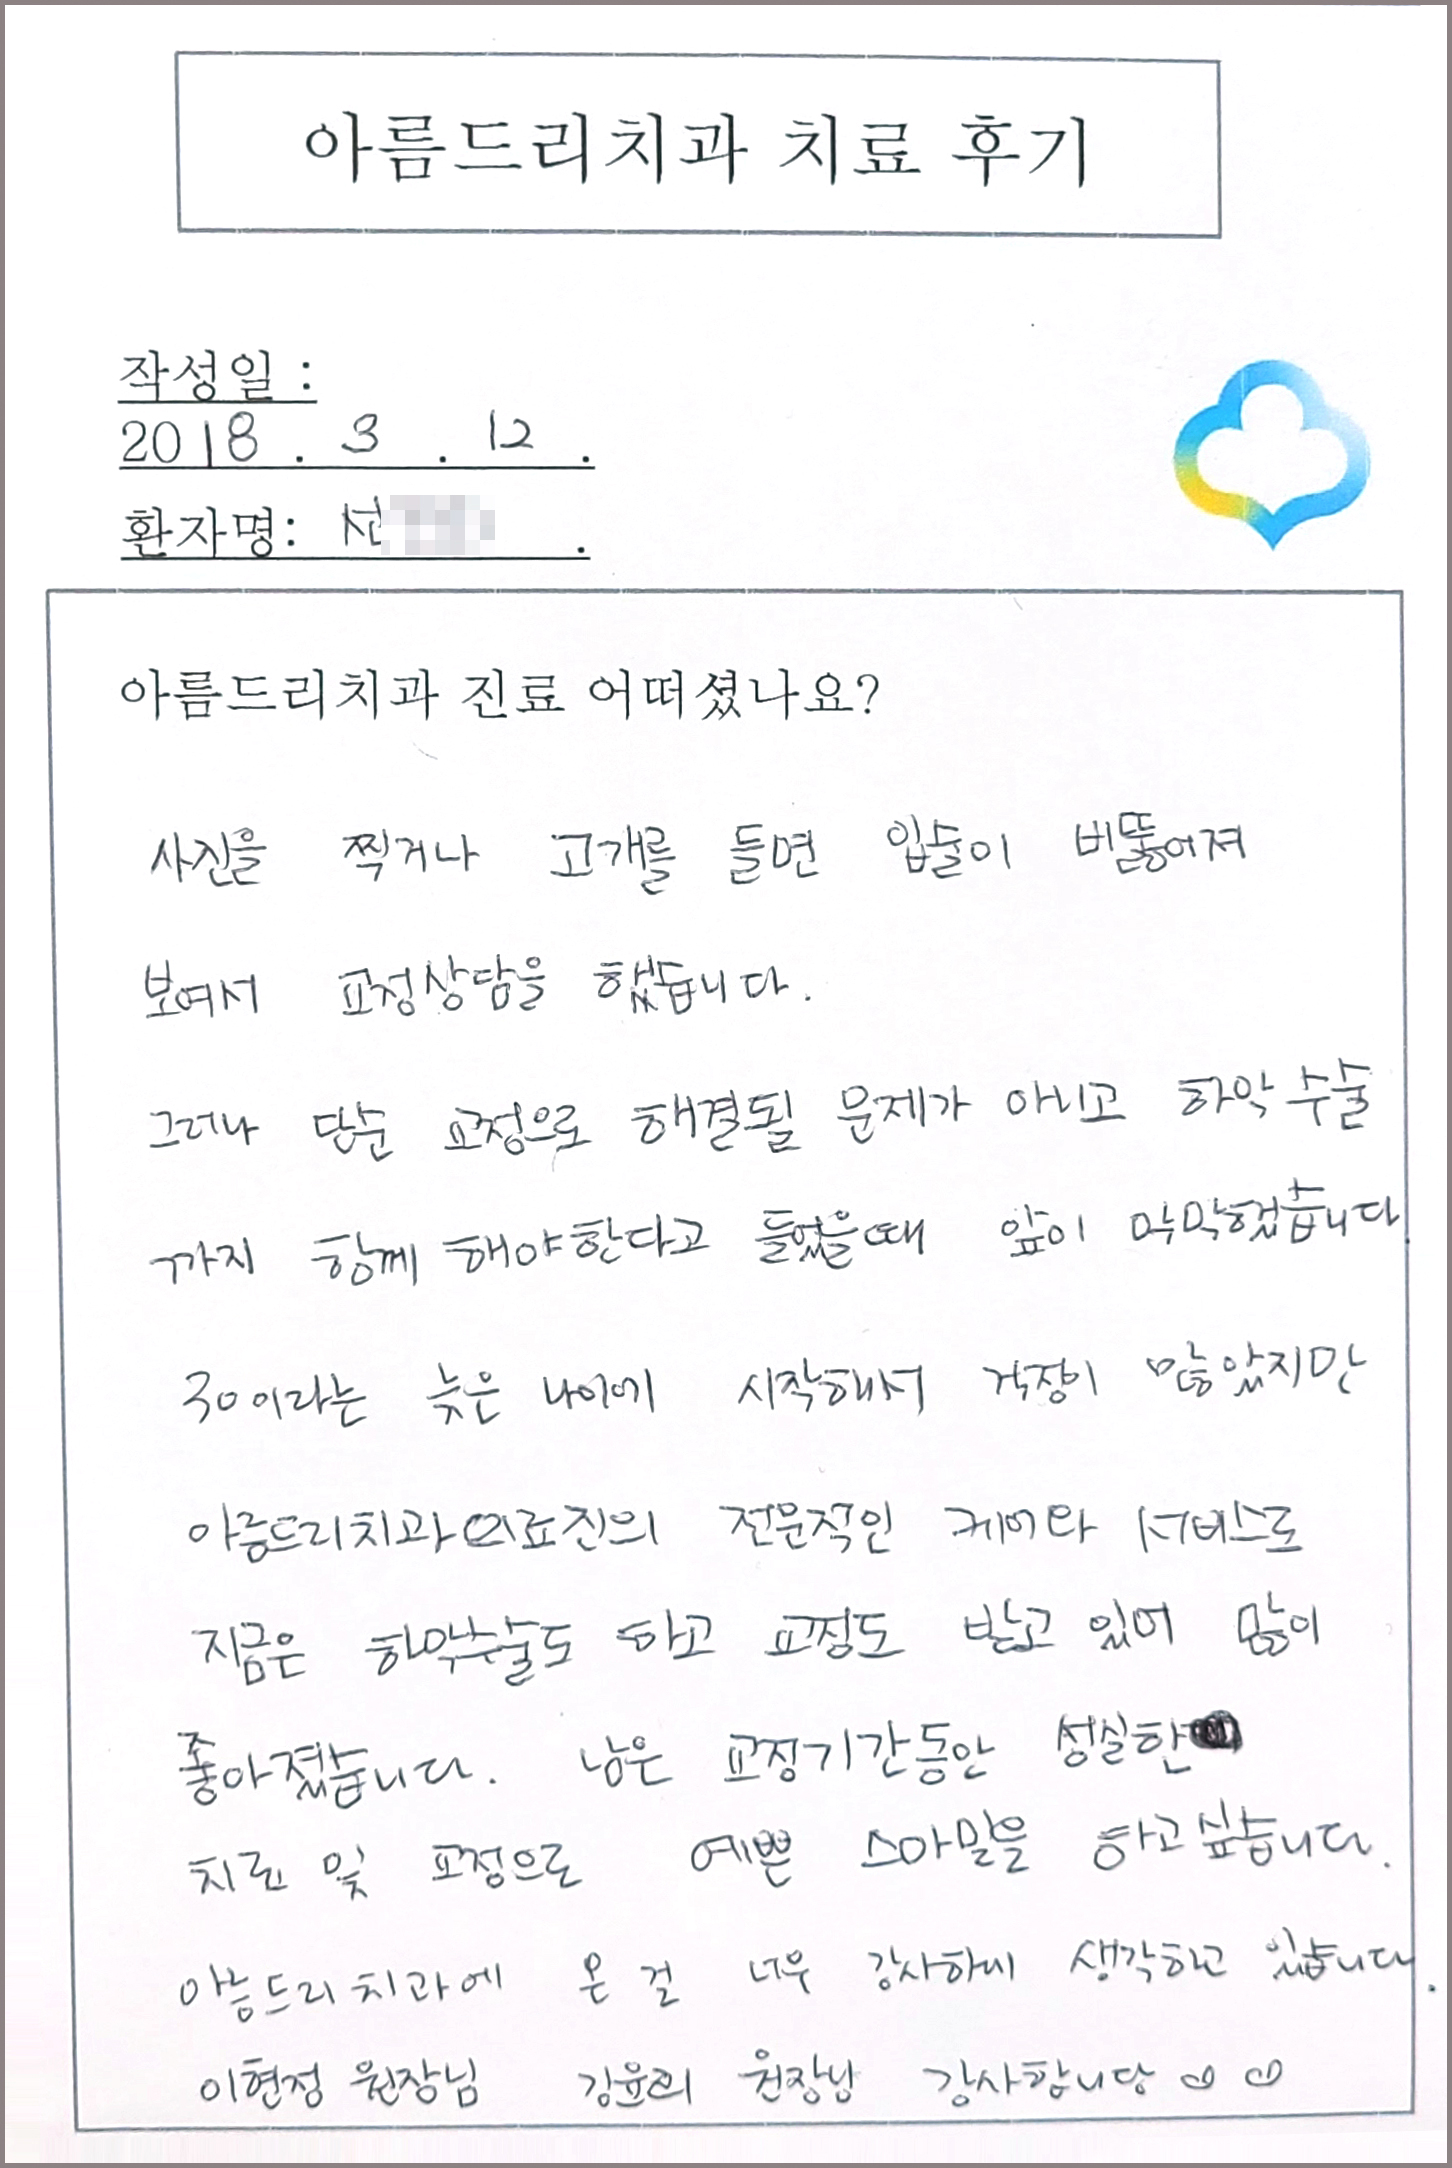 아름드리치과 치료 후기
작성일 :
2018 . 3 . 12 .
환자명: 선 .
아름드리치과 진료 어떠셨나요?
사진을 찍거나 고개를 들면 입술이 비뚫어져
보여서 교정상담을 했습니다.
그러나 단순 교정으로 해결될 문제가 아니고 하악 수술
까지 함께 해야한다고 들었을때 앞이 막막했습니다
30이라는 늦은 나이에 시작해서 걱정이 많았지만
아름드리치과 의료진의 전문적인 케어와 서비스로
지금은 하악수술도 하고 교정도 받고 있어 많이
좋아졌습니다. 남은 교정기간동안 성실한
치료 및 교정으로 예쁜 스마일을 하고싶습니다.
아름드리치과에 온 걸 너무 감사하게 생각하고 있습니다.
이현정 원장님 원장님 감사합니당 ♡ ♡